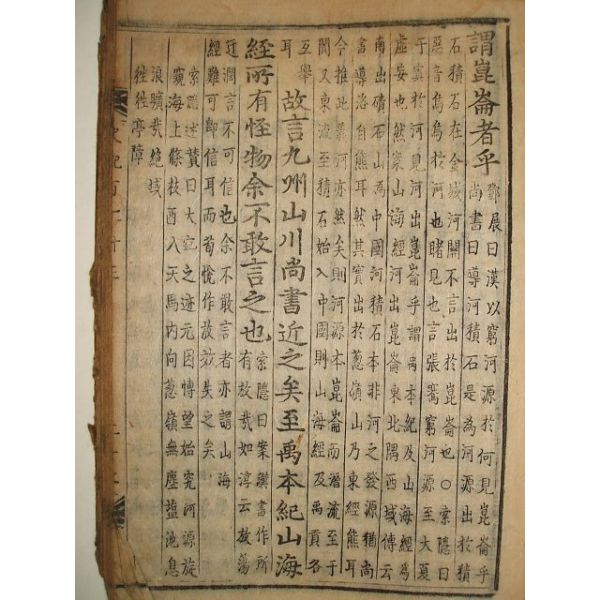 謂崑崙者乎
鄧展曰漢以窮河源於何見崑崙乎
尚書曰導河積石是為河源出於積
石積石在金城河關不言出於崑崙也○索隱曰
惡音烏烏於何也睹見也言張騫窮河源至大夏
于窴於何見河出崑崙乎謂禹本紀及山海經為
虛妄也然案山海經河出崑崙東北隅西域傳云
南出磧石山為中國河積石本非河之發源猶尚
書導洛自熊耳然其實出於蔥嶺山乃東經熊耳
今推此義河亦然矣則河源本崑崙而潛流至于
闐又東流至積石始入中國則山海經及禹貢各
互舉
耳
故言九州山川尚書近之矣至禹本紀山海
經所有怪物余不敢言之也
索隱曰案漢書作所
有放哉如淳云放蕩
迂濶言不可信也余不敢言者亦謂山海
經難可即信耳而荀悅作放效失之矣
索隱述贊曰大宛之迹元因博望始究河源旋
窺海上條枝西入天馬內向蔥嶺無塵鹽池息
浪曠哉絕域
往往亭障